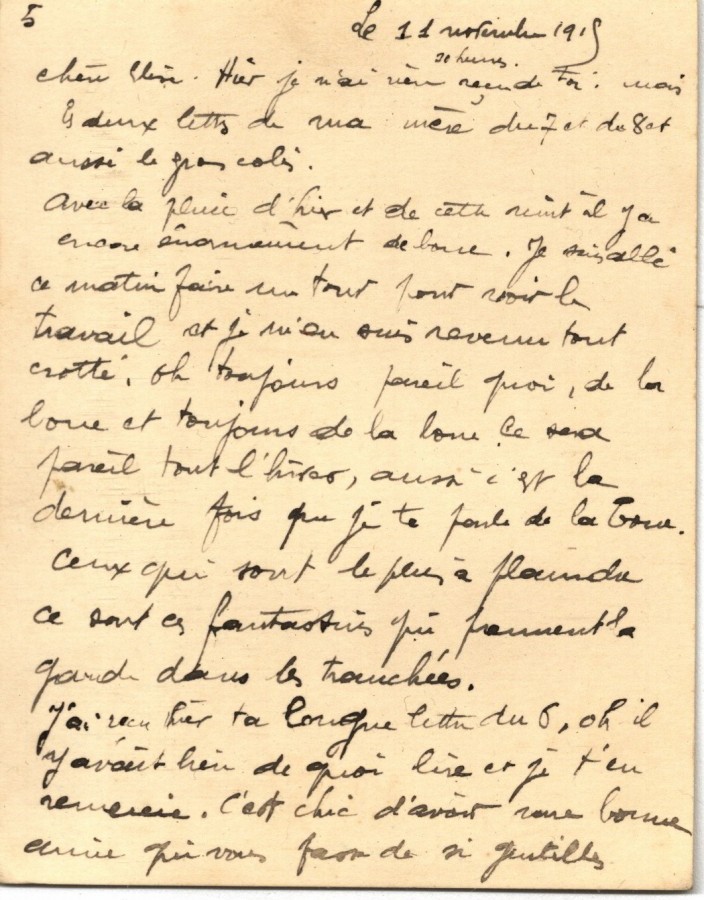 5
Le 11 novembre 1915
10 heures.
chère Elise. Hier je n'ai rien reçu de Toi. mais
les deux letts de ma mère du 7 et du 8 et
aussi le gros colis.
Avec la pluie d'hier et de cette nuit il y a
encore énormément de boue. Je suis allé
ce matin faire un tour pour voir le
travail et je m'en suis revenu tout
crotté. oh toujours pareil quoi, de la
boue et toujours de la boue ce sera
pareil tout l'hiver, aussi c'est la
dernière fois que je te parle de la boue.
Ceux qui sont le plus à plaindre
ce sont ces fantassins qui prennent la
garde dans les tranchées.
J'ai reçu hier ta longue lettre du 6, oh il
y avait bien de quoi lire et je t'en
remercie. C'est chic d'avoir une bonne
amie qui vous fasse de si gentilles